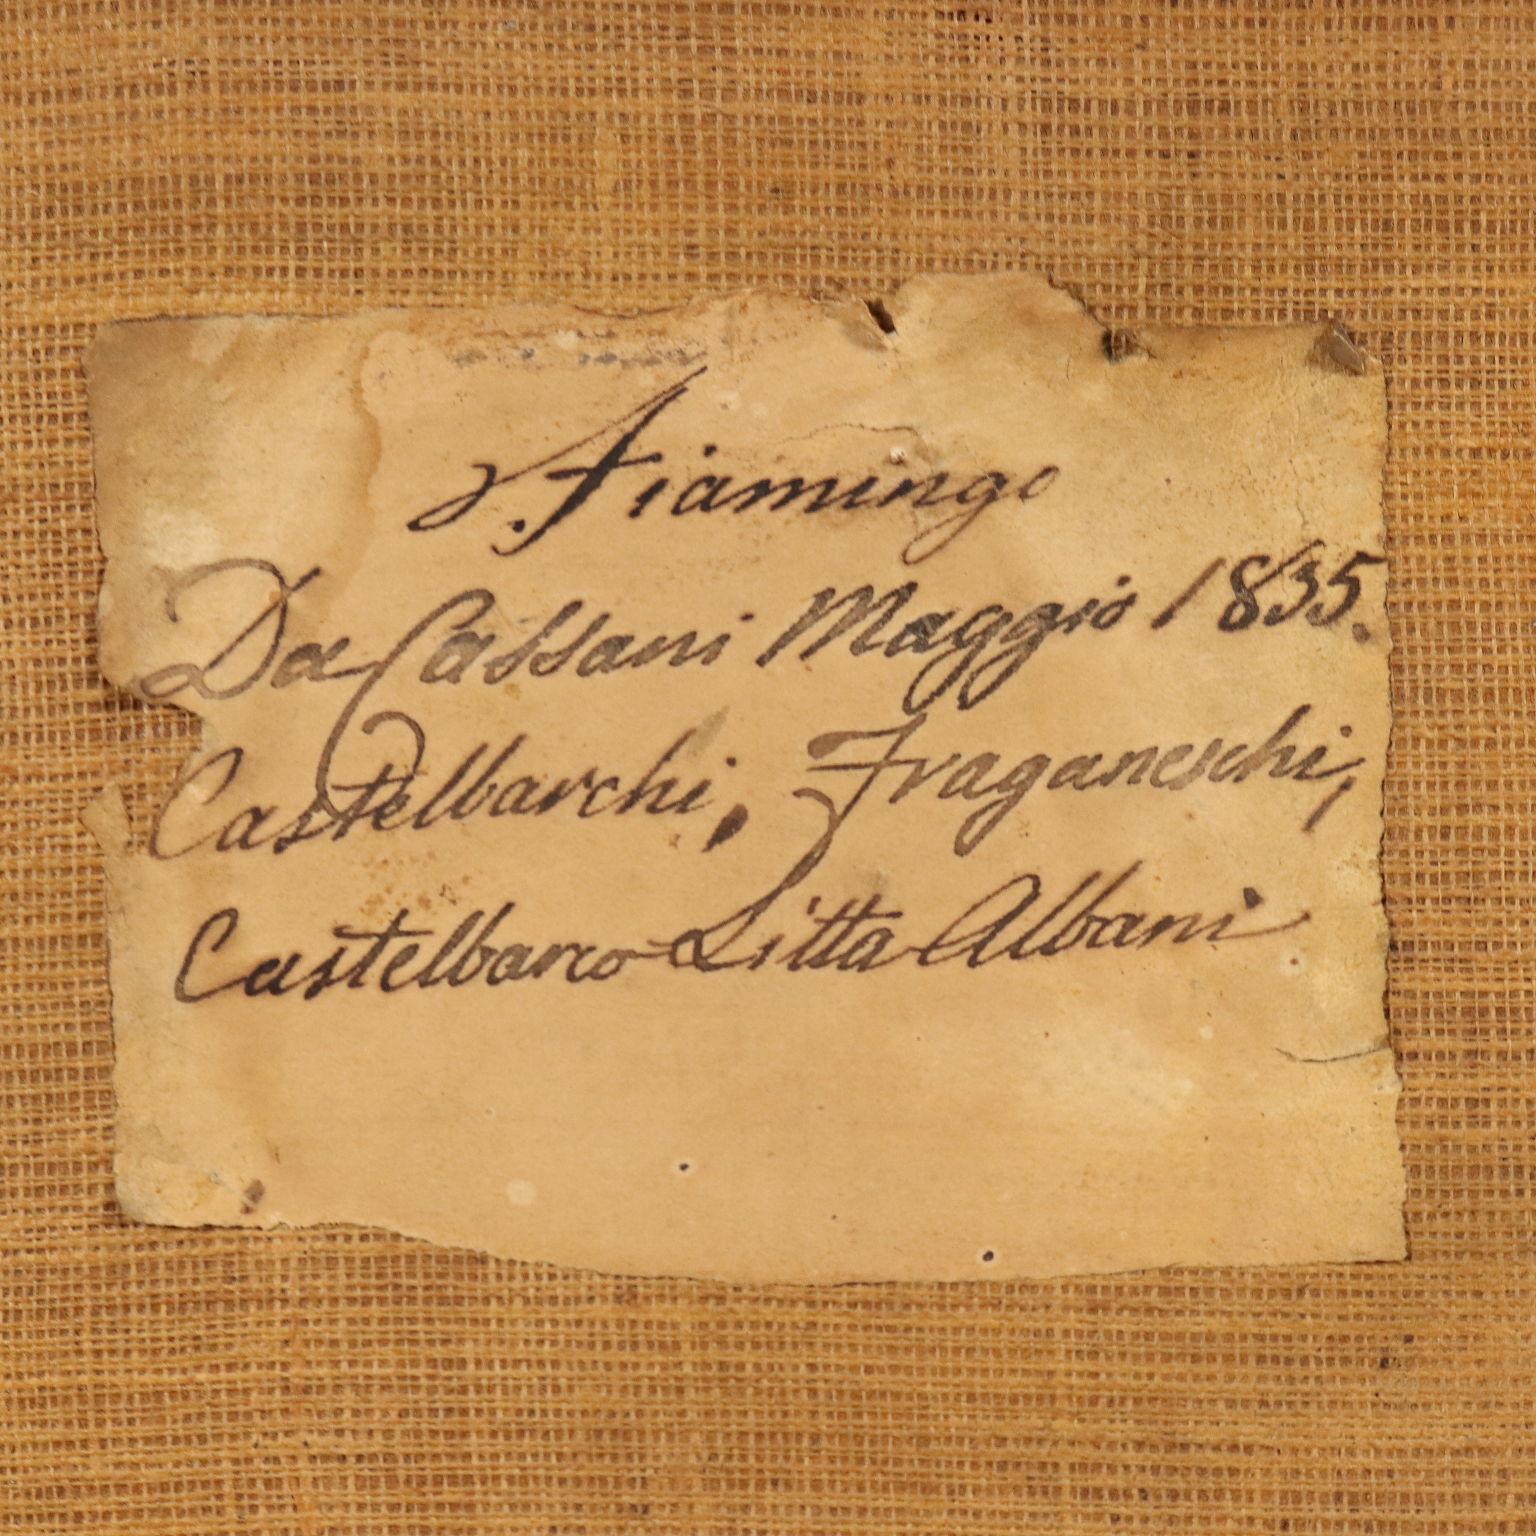 Fiamingo
Da Cassani Maggio 1835.
Castelbarchi, Fraganeschi,
Castelbarco Litta Albani